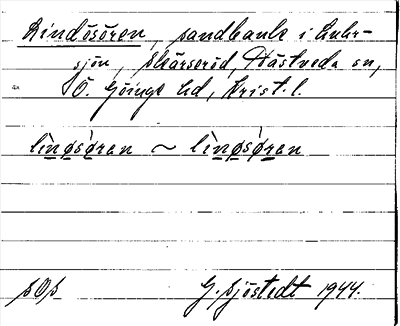 Lindösören, sandbank i Luhr-
sjön, Skärseröd, Hästveda sn,
Ö. Göinge hd, Krist. l.
lìnøsǿrən ~ lìnøsǿrən
sOs G. Sjöstedt 1944.